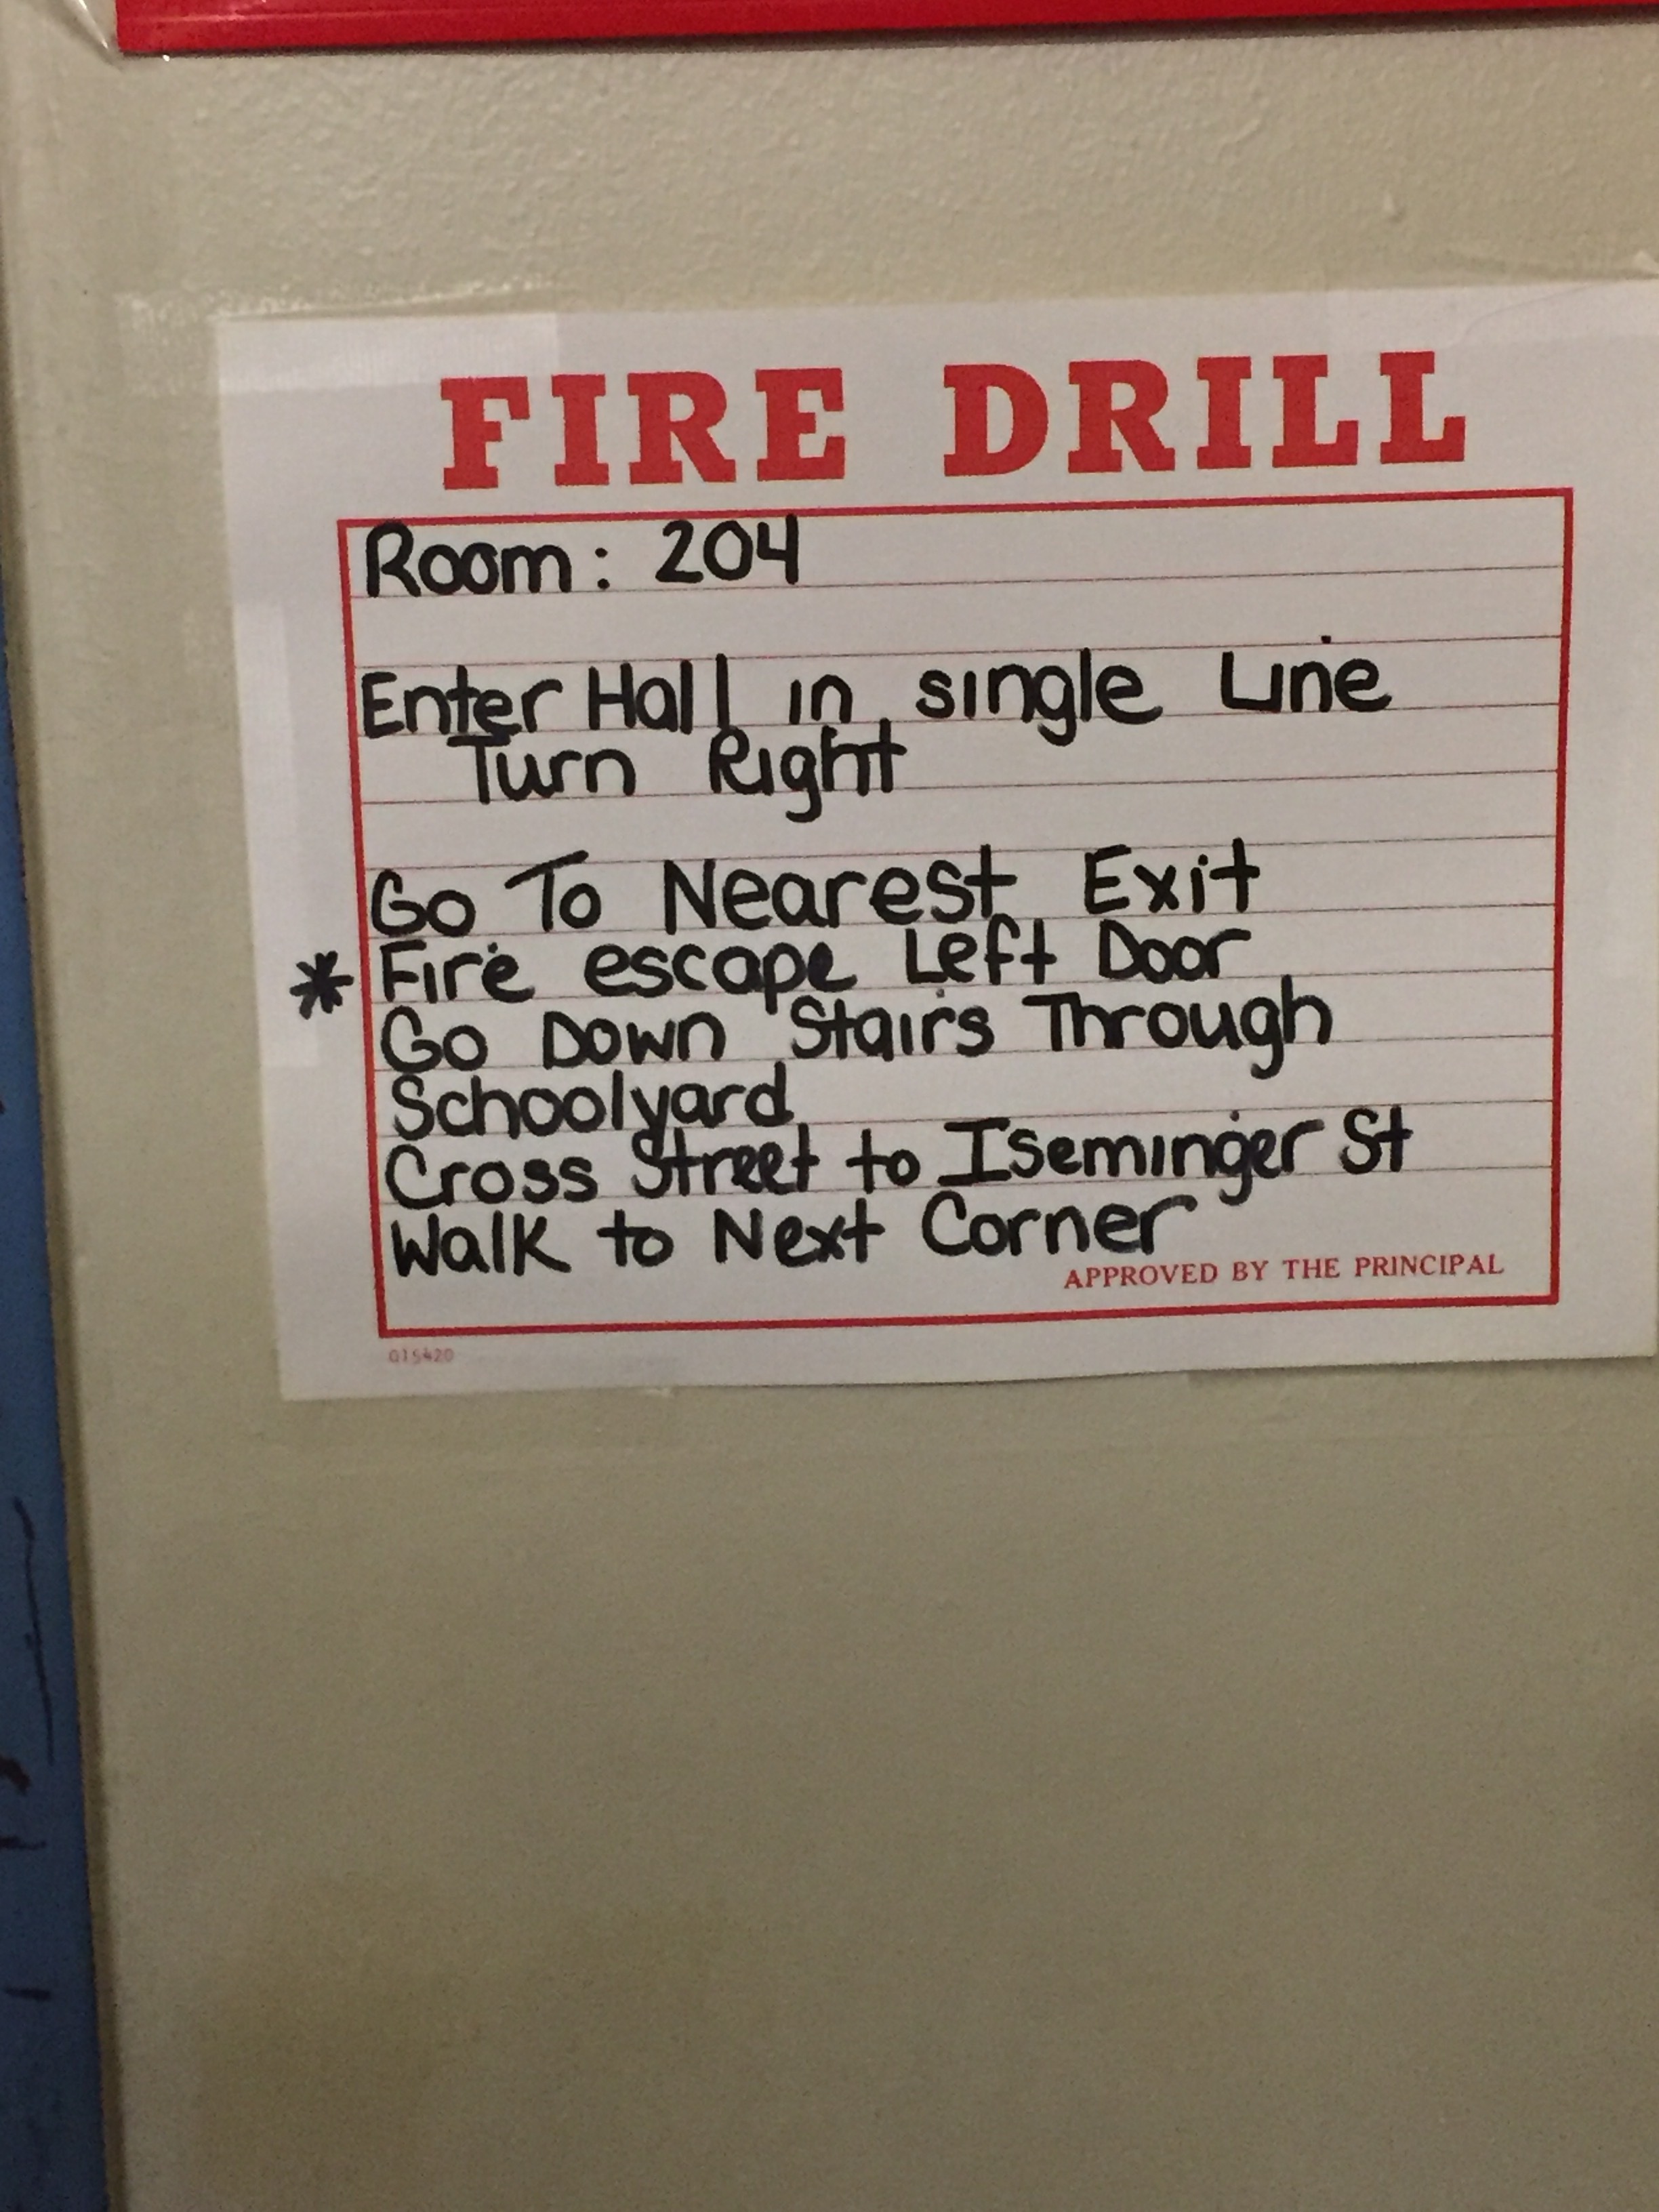 FIRE DRILL
Room: 204
Enter Hall in single Line
Turn Right
Go To Nearest Exit
* Fire escape Left Door
Go Down Stairs Through
Schoolyard
Cross Street to Iseminger St
Walk to Next Corner
APPROVED BY THE PRINCIPAL
015420